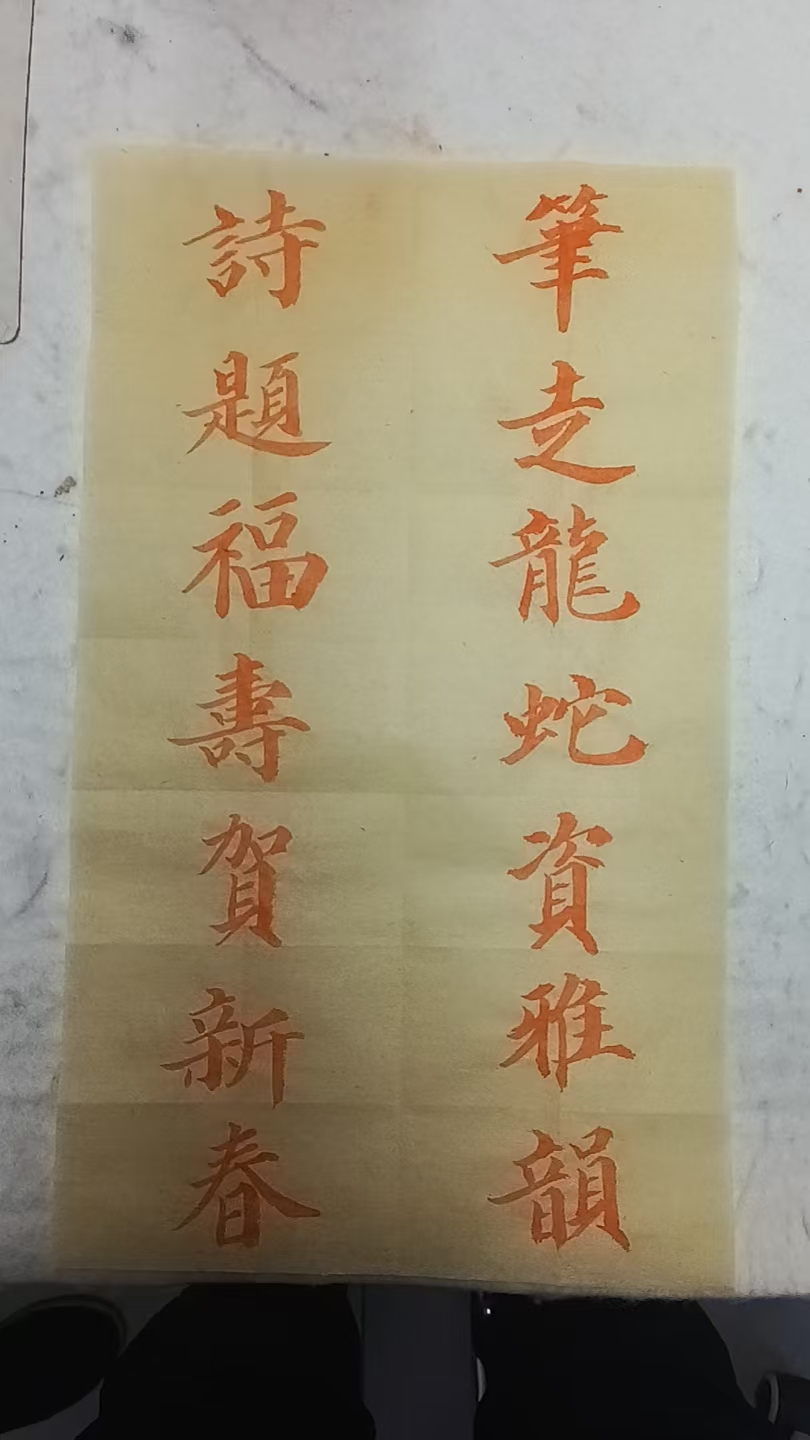 筆走龍蛇資雅韻
詩題福壽賀新春